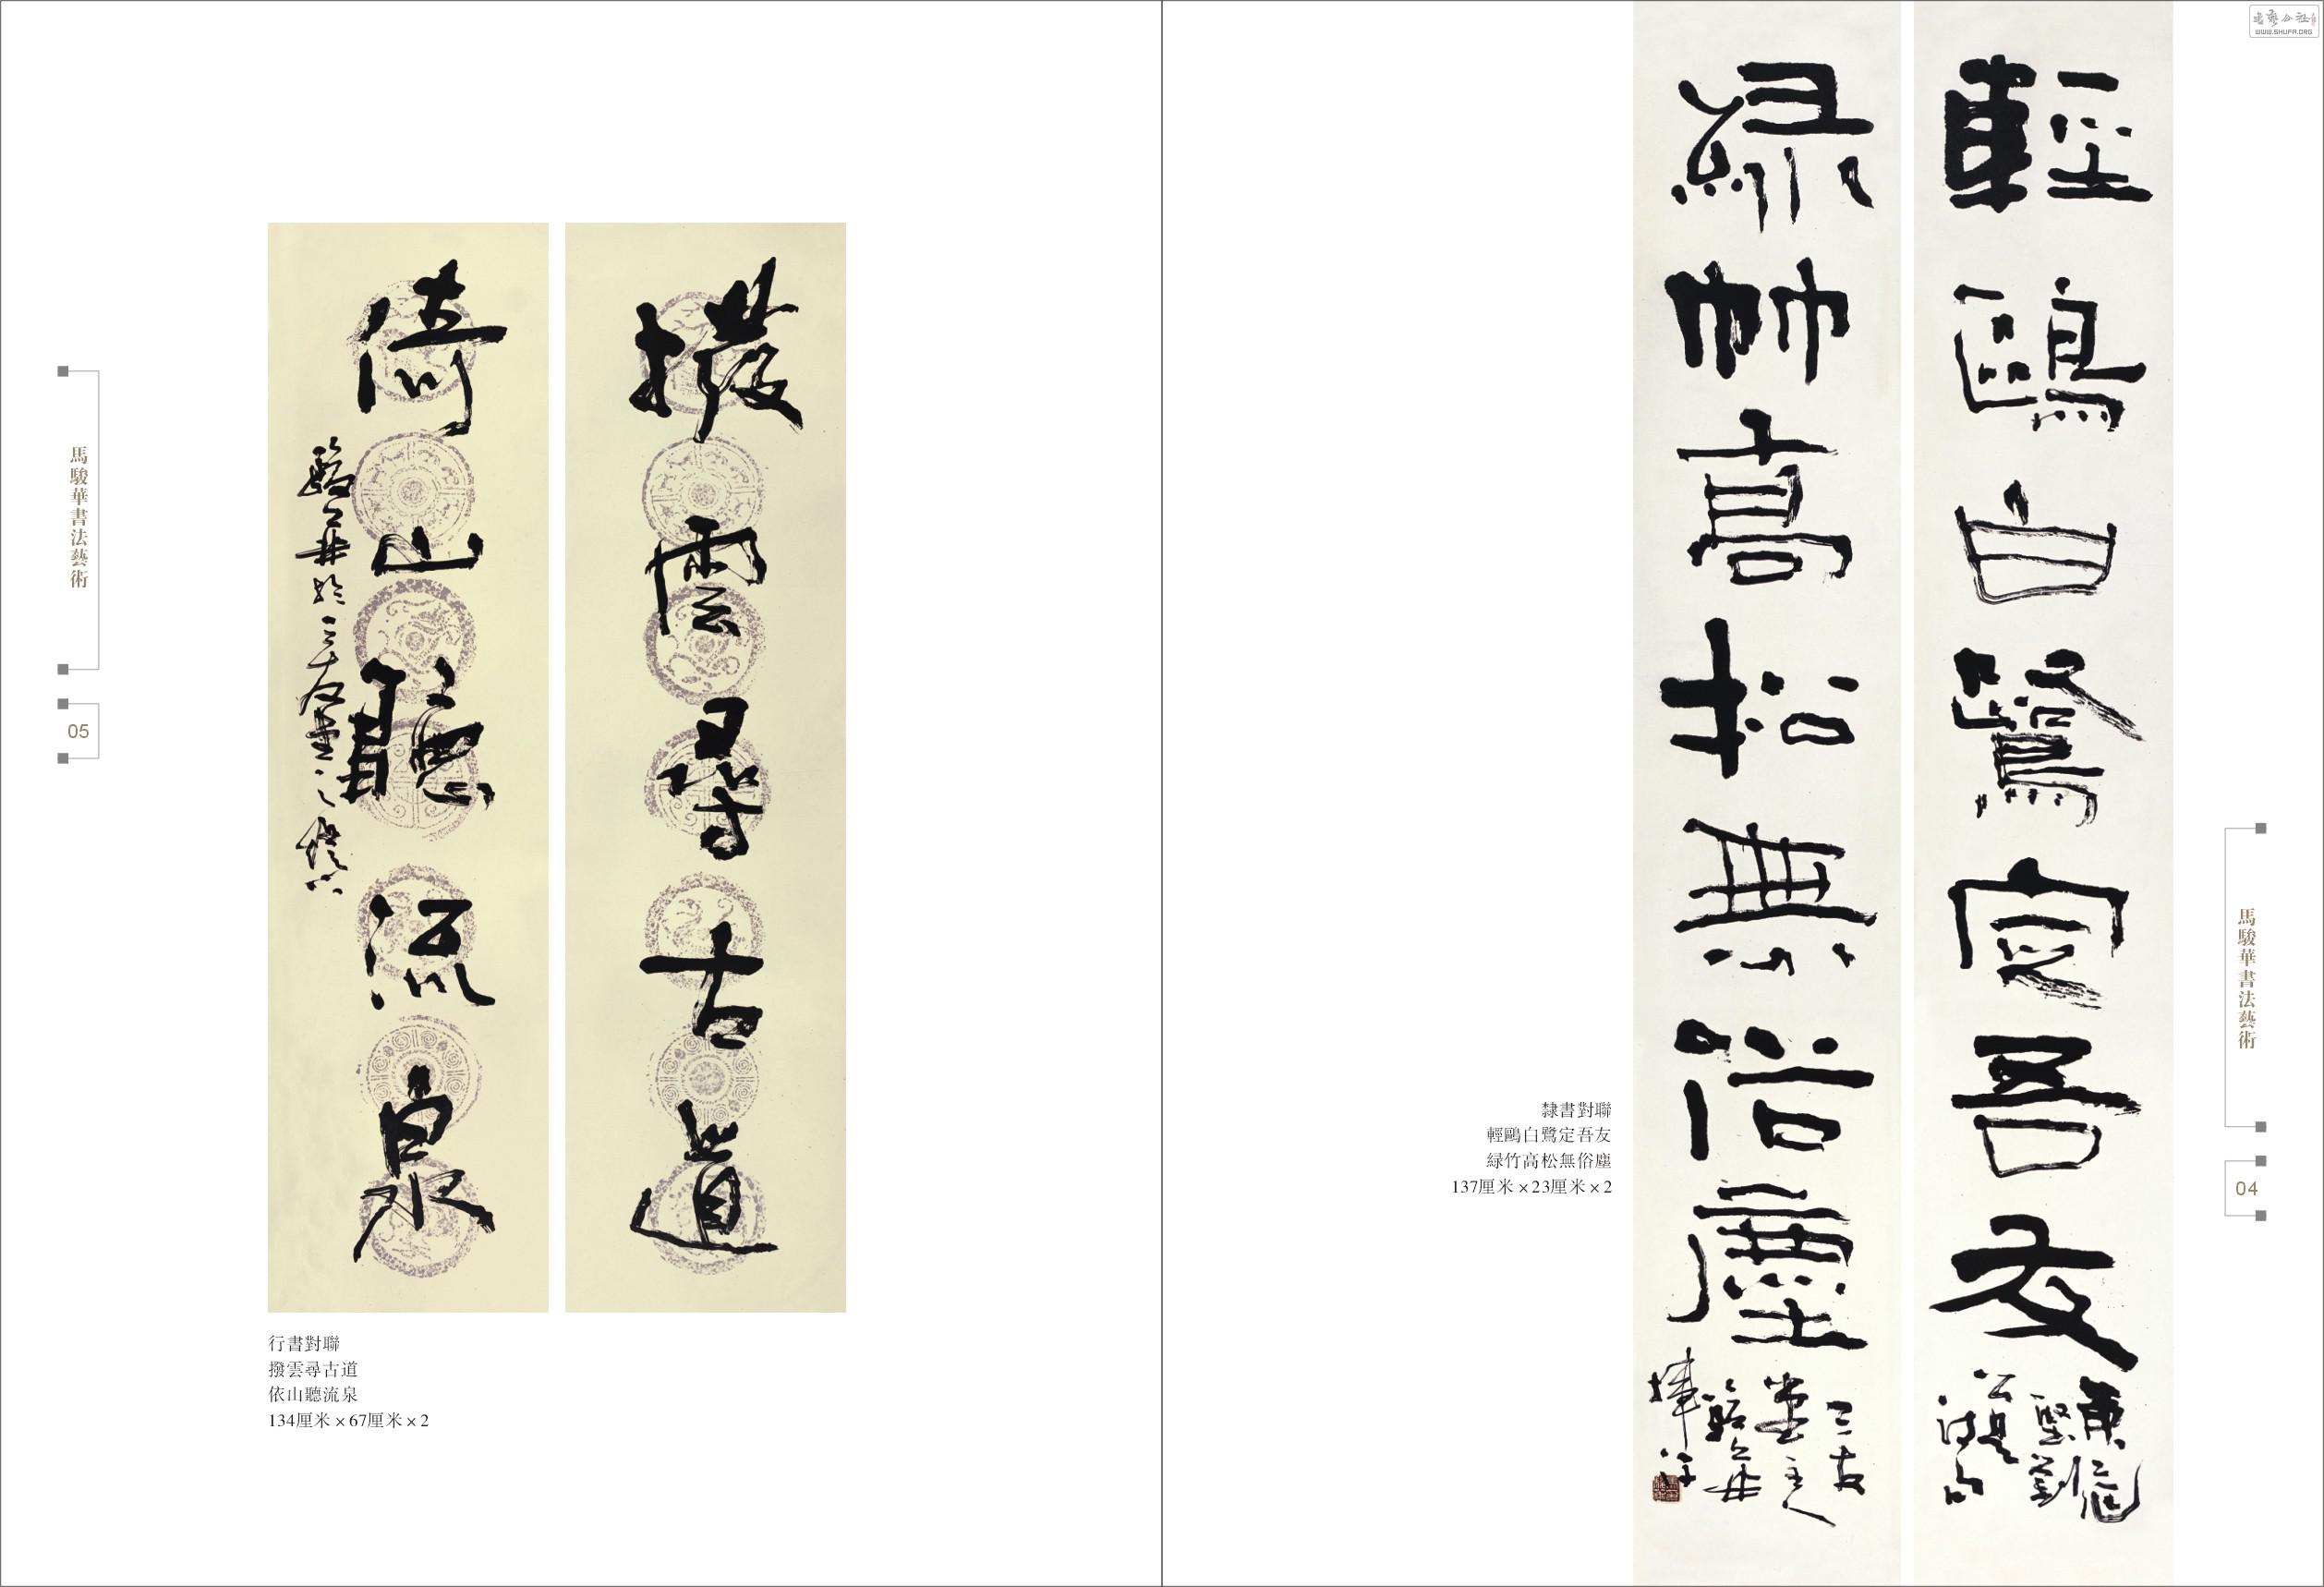 書藝公社
WWW.SHUFA.ORG
輕鷗白鷺定吾友
緑竹高松無俗塵
三友
堂主人
駿華
揮汗
馬駿華書法藝術
04
隸書對聯
輕鷗白鷺定吾友
緑竹高松無俗塵
137厘米×23厘米×2
撥雲尋古道
倚山聽流泉
駿華於三友堂之燈下
行書對聯
撥雲尋古道
依山聽流泉
134厘米×67厘米×2
馬駿華書法藝術
05